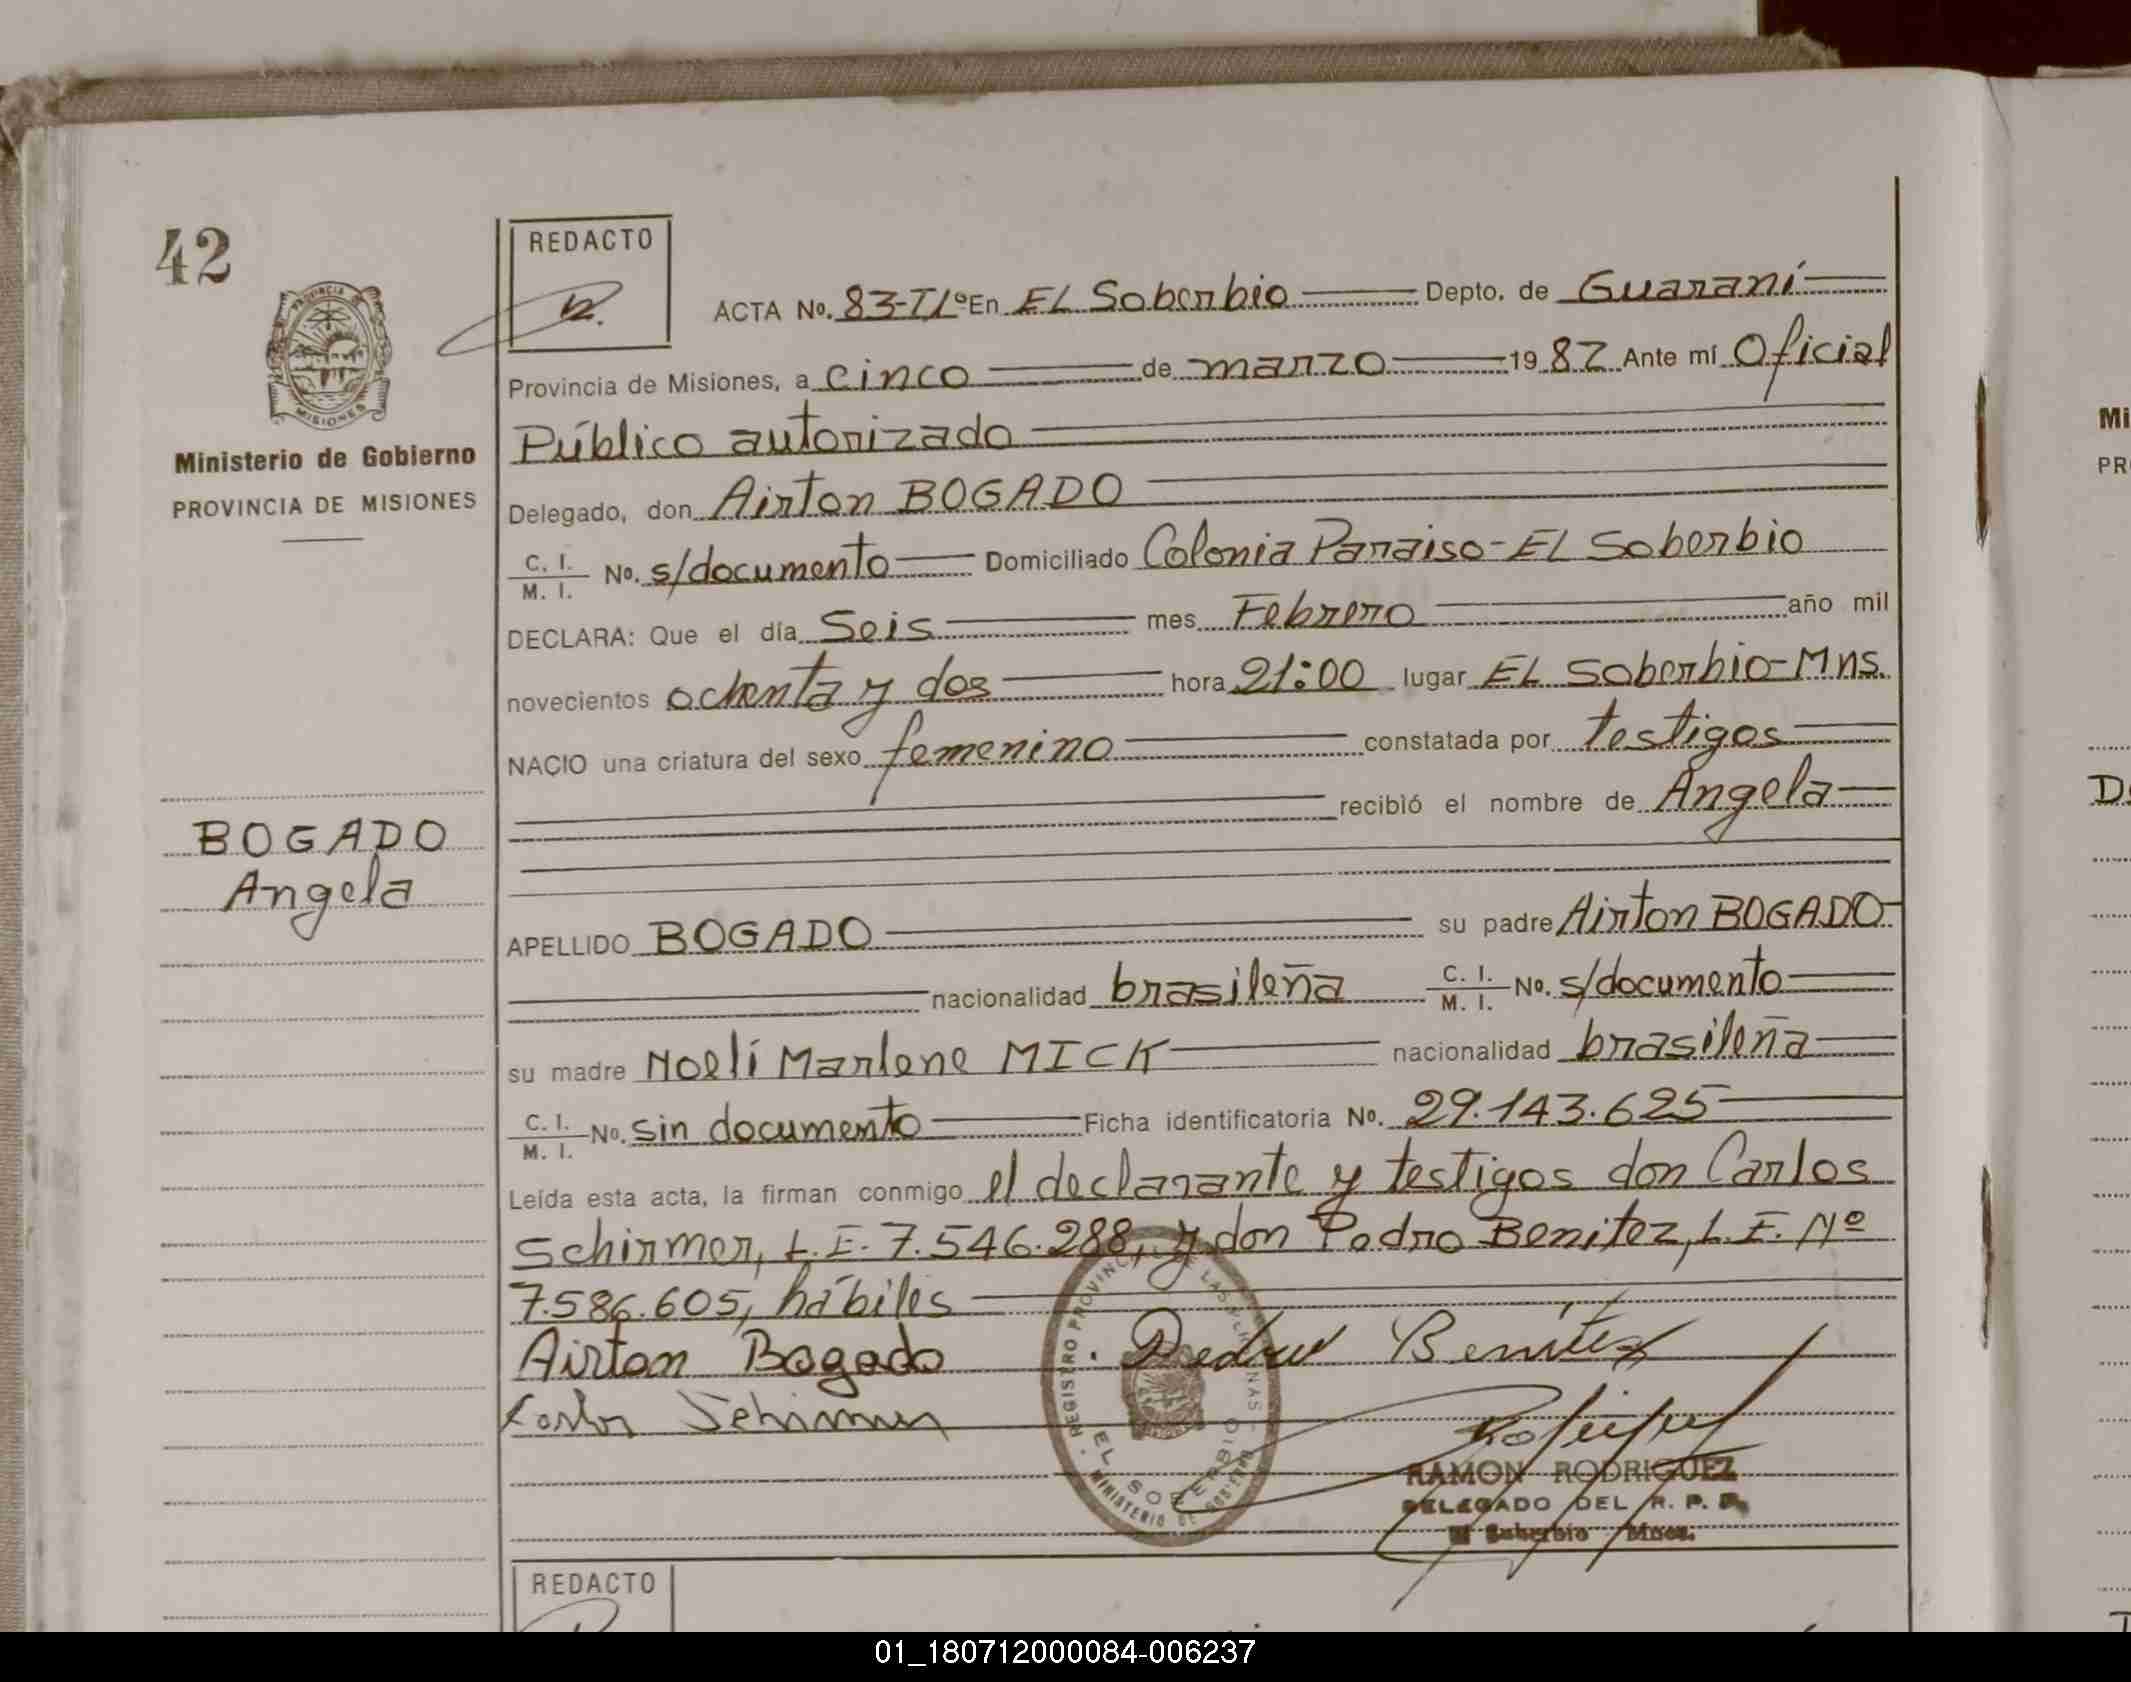 42
PROVINCIA DE
MISIONES
Ministerio de Gobierno
PROVINCIA DE MISIONES
BOGADO
Angela
REDACTO
ACTA No. 83-TIº En EL Soberbio Depto. de Guaraní
Provincia de Misiones, a cinco de marzo 1982 Ante mí Oficial
Público autorizado
Delegado, don Airton BOGADO
C. I. M. I. No. s/documento Domiciliado Colonia Paraiso-EL Soberbio
DECLARA: Que el día Seis mes Febrero año mil
novecientos ochenta y dos hora 21:00 lugar EL Soberbio-Mns.
NACIO una criatura del sexo femenino constatada por testigos
recibió el nombre de Angela
APELLIDO BOGADO su padre Airton BOGADO
nacionalidad brasileña C. I. M. I. No. s/documento
su madre Noelí Marlene MICK nacionalidad brasileña
C. I. M. I. No. sin documento Ficha identificatoria No. 29.143.625
Leída esta acta, la firman conmigo el declarante y testigos don Carlos
Schirmer, L.E. 7.546.288, y don Pedro Benitez, L.E. Nº
7.586.605, hábiles
Airton Bogado Pedro Benítez
REGISTRO PROVINCIAL DE LAS PERSONAS
EL SOBERBIO
MINISTERIO DE GOBIERNO
RAMON RODRIGUEZ
DELEGADO DEL R. P. P.
El Soberbio Mnes.
REDACTO
Mi
PR
01_180712000084-006237